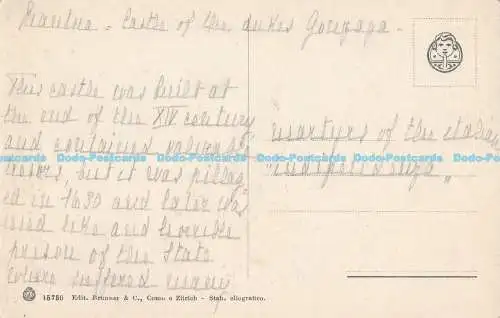 Mantua - Castle of the dukes Gonzaga -
This castle was built at
the end of the XIV century
and contained valuable
but it was pillag
ed in 1630 and later was
used like and horrible
prison of the State
where suffered many
martyrs of the italian
Dodo-Postcards Dodo-Postcards Dodo-Postcards Dodo-Postcards Dodo-Postcards
15750 Edit. Brunner & C., Como e Zürich - Stab. eliografico.